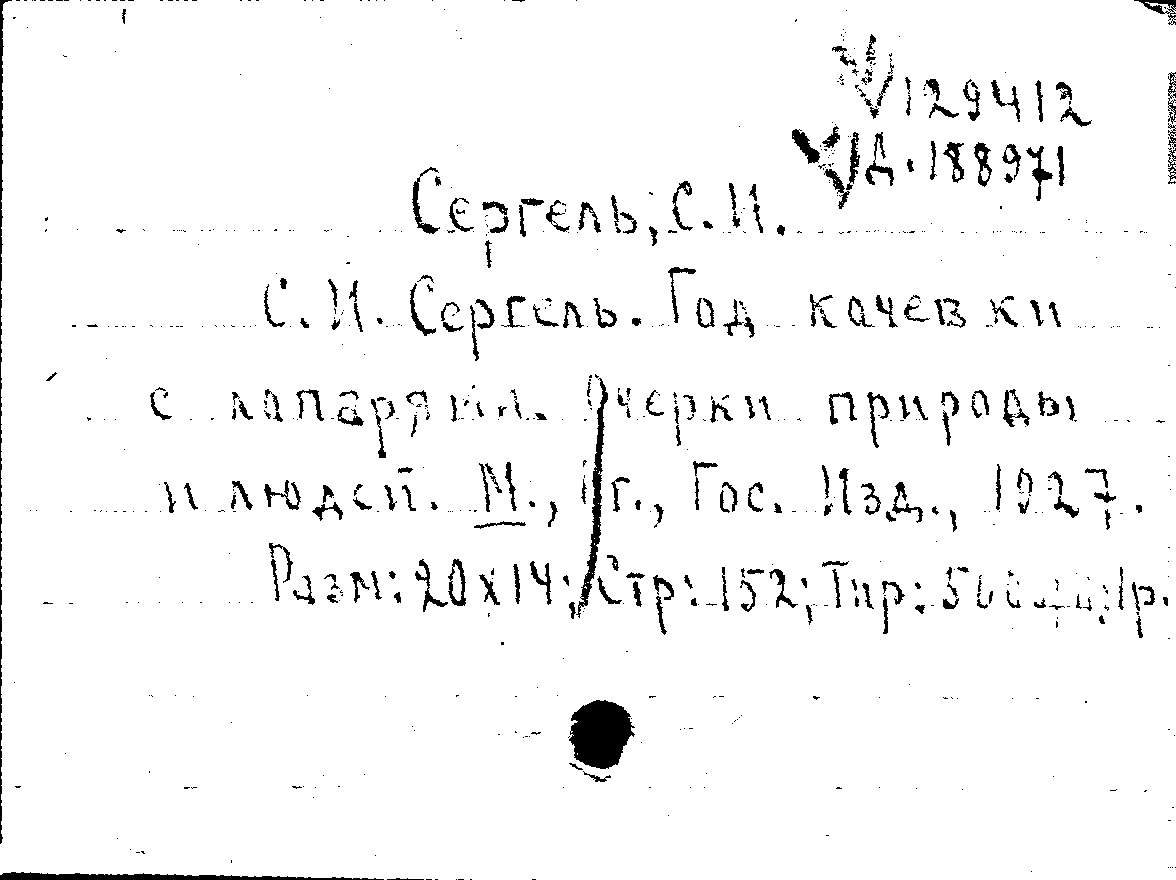 129412
Д. 188971
Сергель, С. И.
С. И. Сергель. Год качевки
с лапарями. Очерки природы
и людей. М., г., Гос. Изд., 1927.
Разм: 20х14; Стр: 152; Тир: 1р.